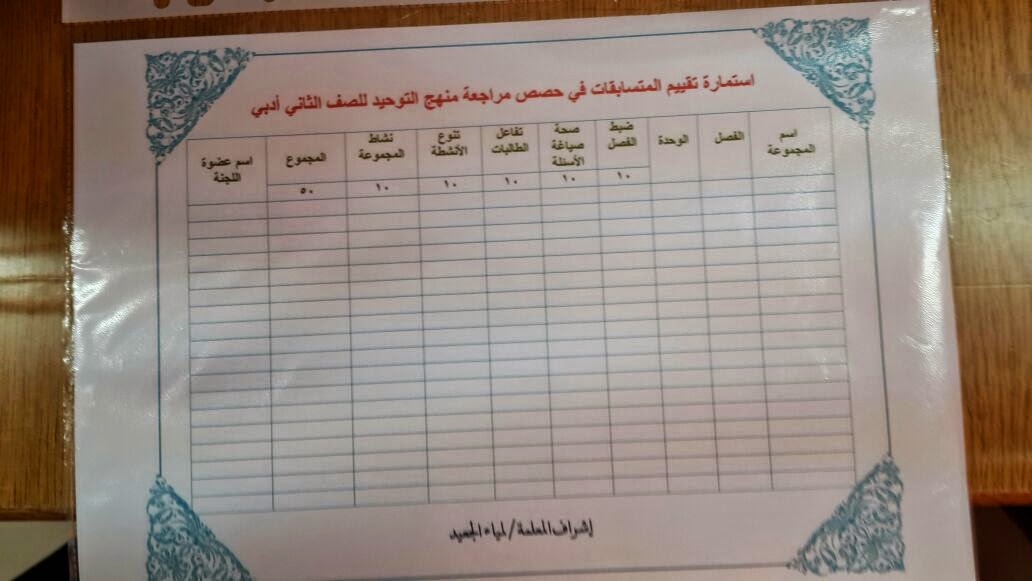 استمارة تقييم المتسابقات في حصص مراجعة منهج التوحيد للصف الثاني أدبي
اسم المجموعة
الفصل
الوحدة
ضبط الفصل
صحة صياغة الأسئلة
تفاعل الطالبات
تنوع الأنشطة
نشاط المجموعة
المجموع
اسم عضوة اللجنة
١٠ ١٠ ١٠ ١٠ ١٠ ٥٠
إشراف المعلمة / لمياء الجعيد